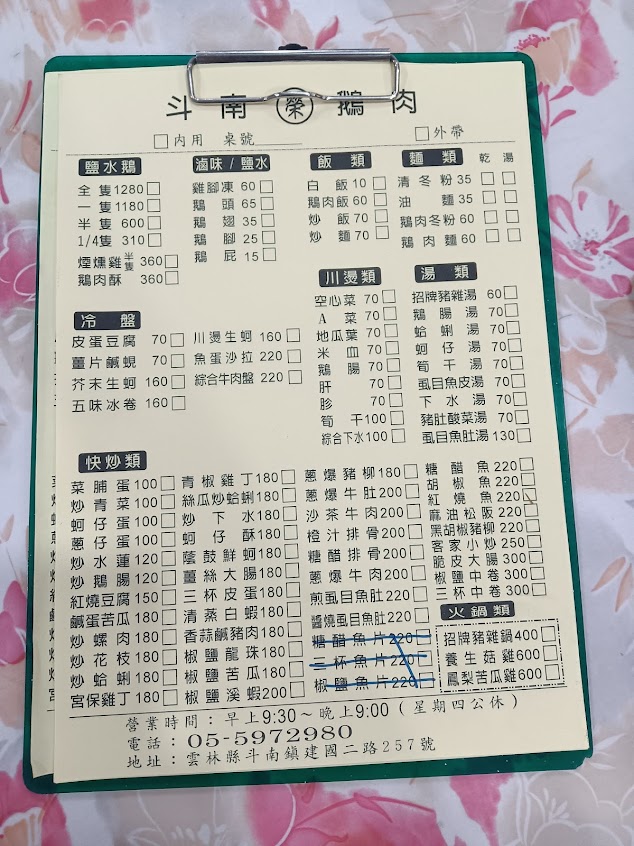 斗南 榮 鵝肉
□內用 桌號 □外帶
鹽水鵝
全隻1280□
一隻1180□
半隻600□
1/4隻310□
煙燻雞半隻360□
鵝肉酥360□
滷味/鹽水
雞腳凍60□
鵝頭65□
鵝翅35□
鵝腳25□
鵝屁15□
飯類
白飯10□
鵝肉飯60□
炒飯70□
炒麵70□
麵類 乾 湯
清冬粉35□□
油麵35□□
鵝肉冬粉60□□
鵝肉麵60□□
冷盤
皮蛋豆腐70□
薑片鹹蜆70□
芥末生蚵160□
五味冰卷160□
川燙生蚵160□
魚蛋沙拉220□
綜合牛肉盤220□
川燙類
空心菜70□
A菜70□
地瓜葉70□
米血70□
鵝腸70□
肝70□
胗70□
筍干100□
綜合下水100□
湯類
招牌豬雜湯60□
鵝腸湯70□
蛤蜊湯70□
蚵仔湯70□
筍干湯70□
虱目魚皮湯70□
下水湯70□
豬肚酸菜湯70□
虱目魚肚湯130□
快炒類
菜脯蛋100□
炒青菜100□
蚵仔蛋100□
蔥仔蛋100□
炒水蓮120□
炒鵝腸120□
紅燒豆腐150□
鹹蛋苦瓜180□
炒螺肉180□
炒花枝180□
炒蛤蜊180□
宮保雞丁180□
青椒雞丁180□
絲瓜炒蛤蜊180□
炒下水180□
蚵仔酥180□
蔭鼓鮮蚵180□
薑絲大腸180□
三杯皮蛋180□
清蒸白蝦180□
香蒜鹹豬肉180□
椒鹽龍珠180□
椒鹽苦瓜180□
椒鹽溪蝦200□
蔥爆豬柳180□
蔥爆牛肚200□
沙茶牛肉200□
橙汁排骨200□
糖醋排骨200□
蔥爆牛肉200□
煎虱目魚肚220□
醬燒虱目魚肚220□
糖醋魚片220□
三杯魚片220□
椒鹽魚片220□
糖醋魚220□
胡椒魚220□
紅燒魚220□
麻油松阪220□
黑胡椒豬柳220□
客家小炒250□
脆皮大腸300□
椒鹽中卷300□
三杯中卷300□
火鍋類
招牌豬雜鍋400□
養生菇雞600□
鳳梨苦瓜雞600□
營業時間：早上9:30～晚上9:00(星期四公休)
電話：05-5972980
地址：雲林縣斗南鎮建國二路257號